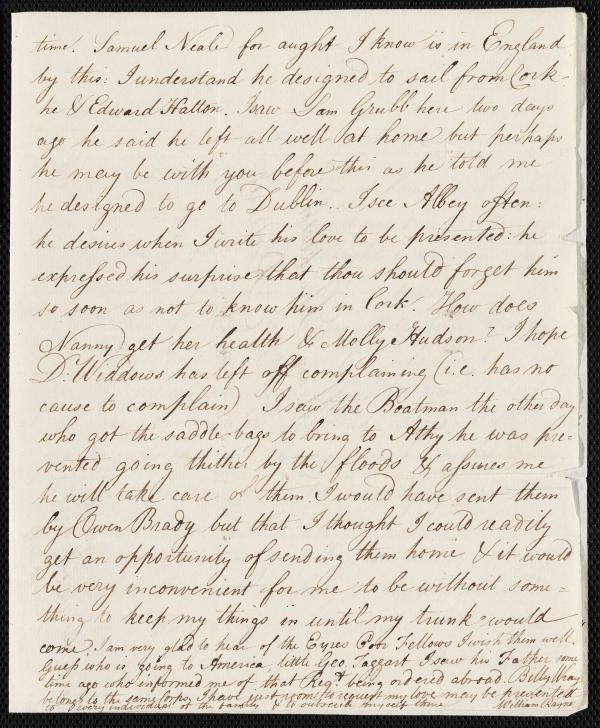 time. Samuel Neale for aught I know is in England
by this: I understand he designed to sail from Cork =
he & Edward Hatton. I saw Sam Grubb here two days
ago he said he left all well at home but perhaps
he may be with you before this as he told me
he designed to go to Dublin. I see Abbey often:
he desires when I write his love to be presented: he
expressed his surprise that thou should forget him
so soon as not to know him in Cork. How does
Nanny get her health & Molly Hudson? I hope
Dr. Widdows has left off complaining (i.e. has no
cause to complain) I saw the Boatman the other day
who got the saddle-bags to bring to Athy he was pre=
vented going thither by the floods & assures me
he will take care of them. I would have sent them
by Owen Brady but that I thought I could readily
get an opportunity of sending them home & it would
be very inconvenient for me to be without some=
thing to keep my things in until my trunk would
come. I am very glad to hear of the Eyres Poor Fellows I wish them well
Guess who is going to America little Geo. Taggart I saw his Father some
time ago who informed me of that Regt. being ordered abroad. Billy Wray
belongs to the same Corps. I have just room to request my love may be presented
to every individual of the family & to subscribe myself thine William Rayner